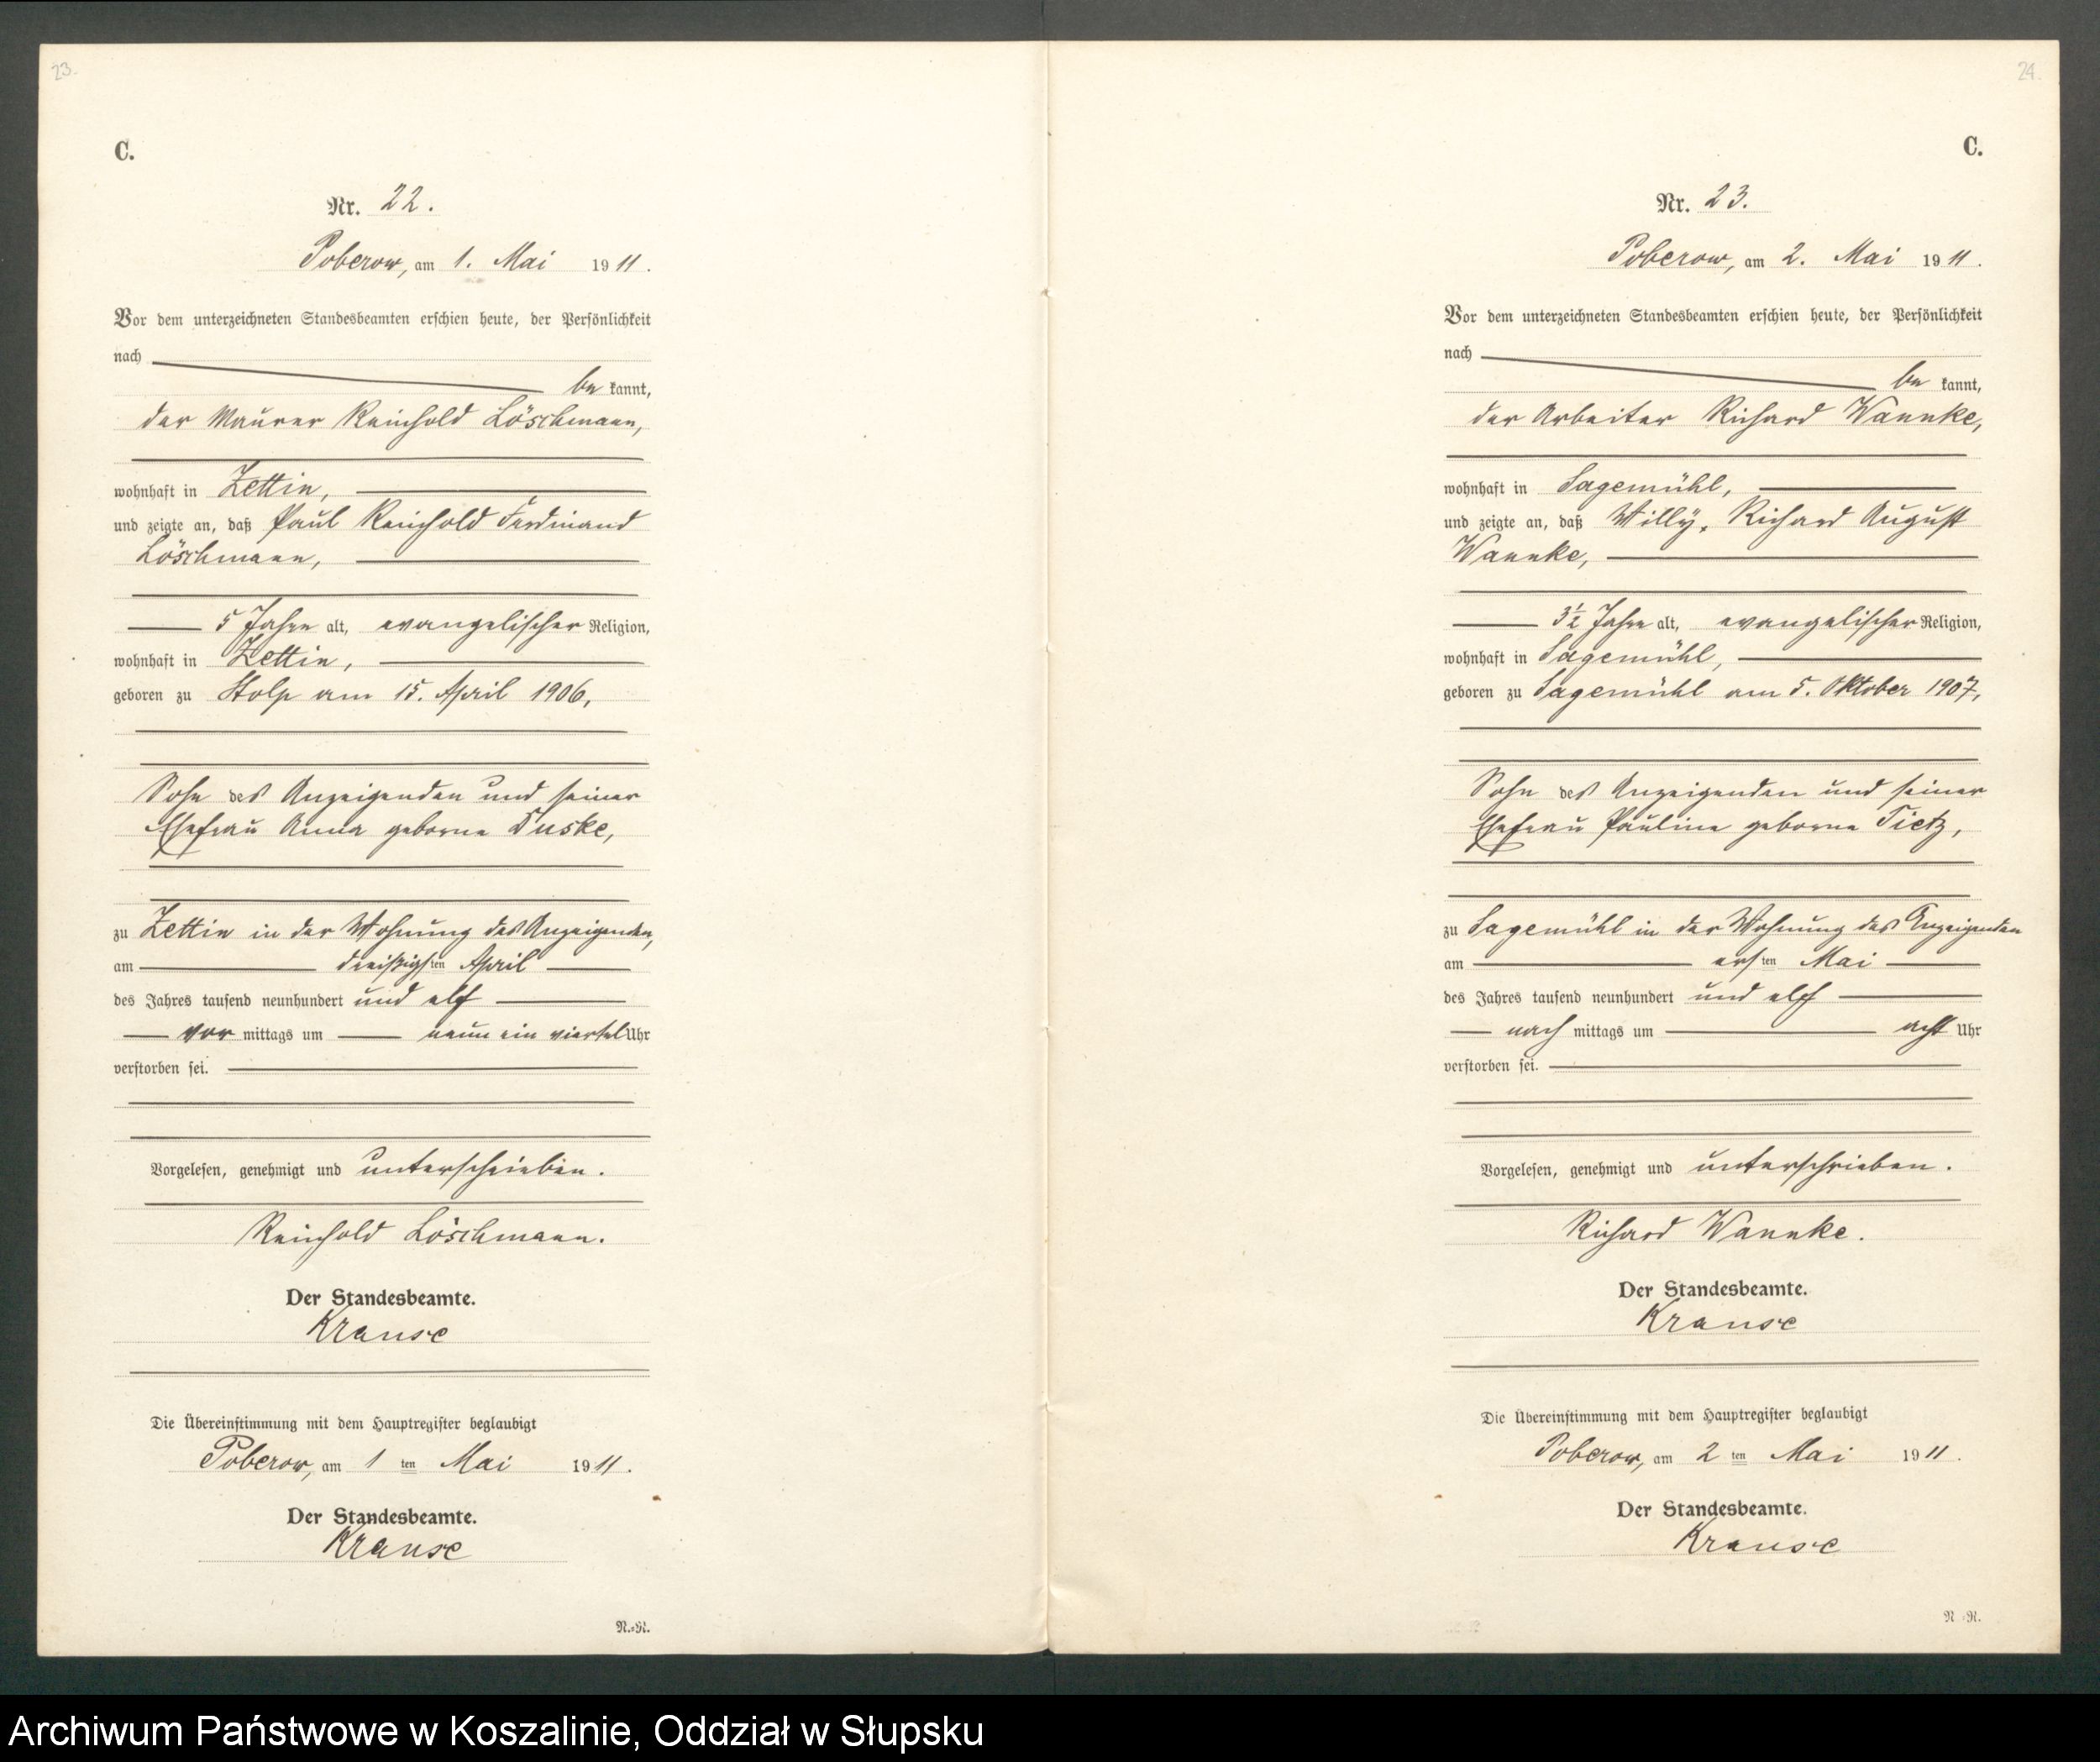 23.
C.
Nr. 22.
Poberow, am 1. Mai 1911.
Vor dem unterzeichneten Standesbeamten erschien heute, der Persönlichkeit
nach
be kannt,
der Maurer Reinhold Löschmann,
wohnhaft in Zettin,
und zeigte an, daß Paul Reinhold Ferdinand
Löschmann,
5 Jahre alt, evangelischer Religion,
wohnhaft in Zettin,
geboren zu Stolp am 15. April 1906,
Sohn des Anzeigenden und seiner
Ehefrau Anna geborne Duske,
zu Zettin in der Wohnung des Anzeigenden,
am dreißigsten April
des Jahres tausend neunhundert und elf
vor mittags um neun ein viertel Uhr
verstorben sei.
Vorgelesen, genehmigt und unterschrieben.
Reinhold Löschmann.
Der Standesbeamte.
Krause
Die Übereinstimmung mit dem Hauptregister beglaubigt
Poberow, am 1 ten Mai 1911.
Der Standesbeamte.
Krause
N.=R.
24.
C.
Nr. 23.
Poberow, am 2. Mai 1911.
Vor dem unterzeichneten Standesbeamten erschien heute, der Persönlichkeit
nach
be kannt,
der Arbeiter Richard Wannke,
wohnhaft in Sagemühl,
und zeigte an, daß Willy, Richard August
Wannke,
3½ Jahre alt, evangelischer Religion,
wohnhaft in Sagemühl,
geboren zu Sagemühl am 5. Oktober 1907,
Sohn des Anzeigenden und seiner
Ehefrau Pauline geborne Tietz,
zu Sagemühl in der Wohnung des Anzeigenden
am ersten Mai
des Jahres tausend neunhundert und elf
nach mittags um acht Uhr
verstorben sei.
Vorgelesen, genehmigt und unterschrieben.
Richard Wannke.
Der Standesbeamte.
Krause
Die Übereinstimmung mit dem Hauptregister beglaubigt
Poberow, am 2 ten Mai 1911.
Der Standesbeamte.
Krause
N.=R.
Archiwum Państwowe w Koszalinie, Oddział w Słupsku